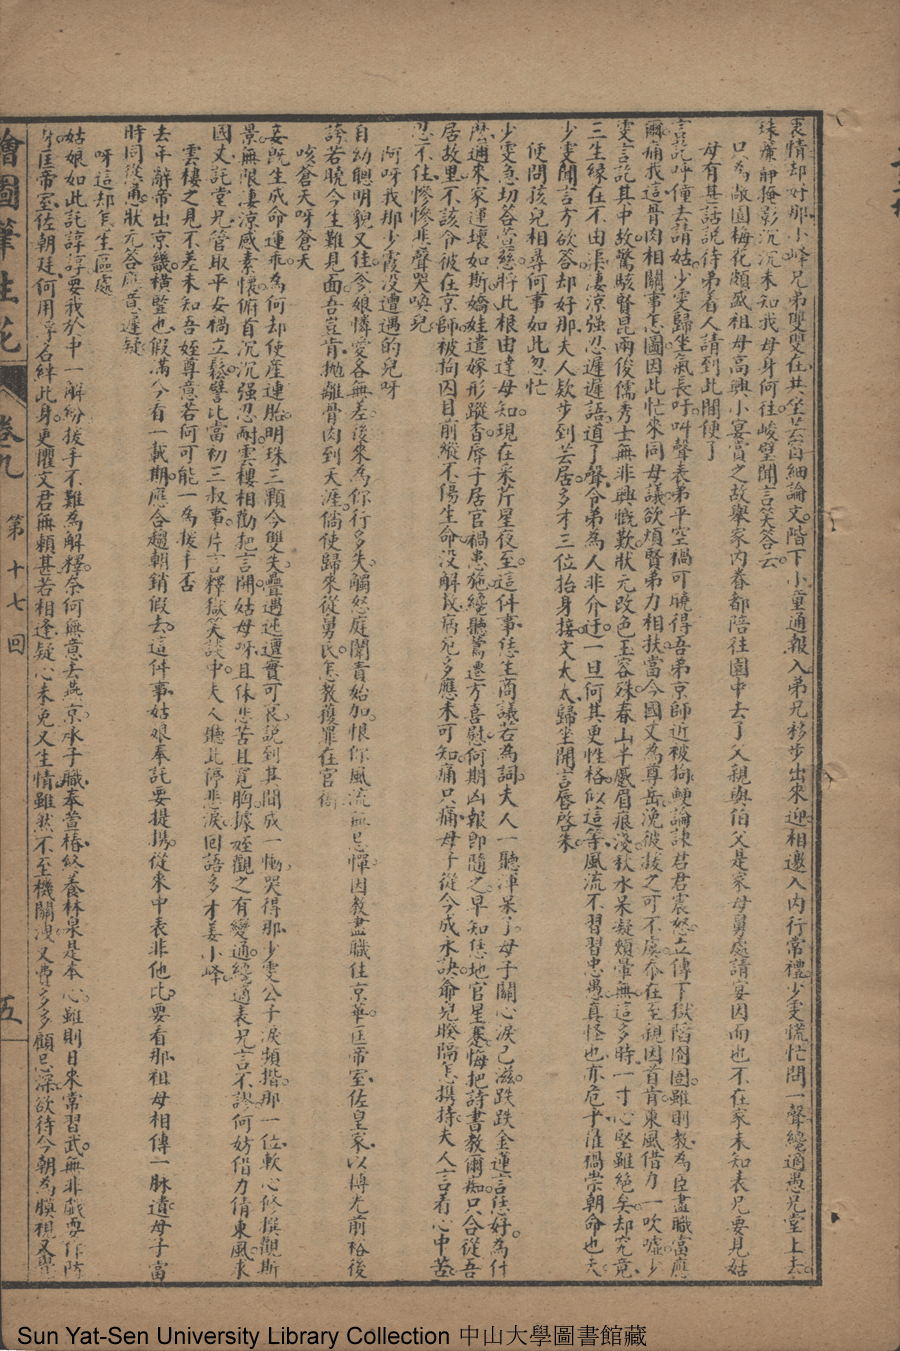 衷情却好那小峰兄弟雙雙在共坐芸窗細論文階下小童通報入弟兄移步出來迎相邀入內行常禮少雯慌忙問一聲纔適愚兄堂上去
珠簾靜掩影沉沉未知我母身何往峻璧聞言笑答云
只為敝園梅花頗盛祖母高興小宴賞之故舉家內眷都陪往園中去了父親與伯父是家母舅處請宴因而也不在家未知表兄要見姑
母有甚話說待弟着人請到此間便了
言訖呼僮去請姑少雯歸坐氣長吁叫聲表弟平空禍可曉得吾弟京師近被拘鯁論諫君君震怒立傳下獄陷囹圄雖則教為臣盡職當應
爾痛我這骨肉相關事怎圖因此忙來同母議欲煩賢弟力相扶當今國丈為尊岳浼彼援之可不虞忝在至親因首肯東風借力一吹噓少
雯言訖其中故驚駭賢昆兩俊儒秀士無非興慨歎狀元改色玉容殊春山半蹙眉痕淺秋水呆凝頰暈無這多時一寸心堅雖絕矣却究竟
三生緣在不由悲凄涼強忍遲遲語道了聲令弟為人非介迂一旦何其更性格似這等風流不習習忠愚真怪也亦危乎罹禍崇朝命也夫
少雯聞言方欲答却好那夫人欵步到芸居多才三位抬身接文太太歸坐開言唇啓朱
便問孩兒相尋何事如此忽忙
少雯急切答萱慈將此根由達母知現在采芹星夜至這件事恁生商議若為詞夫人一聽渾呆了母子關心淚已滋跌跌金蓮言恁好為什
麽邇來家運壞如斯嬌娃遣嫁形蹤杳辱子居官禍患施纔聽鶯遷方喜慰何期凶報即隨之早知恁地官星蹇悔把詩書教爾痴只合從吾
居故里不該令彼在京師被拘囚目前縱不傷生命没解救病兒多應未可知痛只痛母子從今成永訣爺兒睽隔怎携持夫人言着心中苦
忍不住慘慘悲聲哭喚兒
阿呀我那少霞没遭遇的兒呀
自幼聰明貌又佳爹娘憐愛各無差後來為你行多失觸怒庭闈責始加恨你風流無忌憚因教盡職住京華匡帝室佐皇家以博光前裕後
誇若曉今生難見面吾豈肯拋離骨肉到天涯倘使歸來從舅氏怎教獲罪在官衙
咳蒼天呀蒼天
妾既生成命運乖為何却使產連胎明珠三顆今雙失疊遇迍邅實可哀說到其間成一慟哭得那少雯公子淚頻揩那一位軟心修撰觀斯
景無限凄涼感素懷俯首沉沉強忍耐雲樓相勸把言開姑母呀且休悲苦且寬胸據姪觀之有變通纔適表兄言不謬何妨借力倩東風求
國丈託堂兄管取平安禍立鬆譬比當初三叔事片言釋獄笑談中夫人聽此停悲淚回語多才姜小峰
雲樓之見不差未知吾姪尊意若何可能一為援手否
去年辭帝出京畿橫豎也假滿今有一載期應合趨朝銷假去這件事姑娘奉託要提携從來中表非他比要看那祖母相傳一脉遺母子富
時同從慂狀元答應費遲疑
呀這却怎生區處
姑娘如此託諄諄要我於中一解紛援手不難為解釋奈何無意去燕京承子職奉萱椿終養林泉是本心雖則日來常習武無非戲耍作防
身匡帝室佐朝廷何用浮名絆此身更懼文君無賴甚若相逢疑心未免又生情雖然不至機關洩又費多多顧忌深欲待今朝為膜視又覺
繪圖筆生花　卷九　第十七回　五
Sun Yat-Sen University Library Collection 中山大學圖書館藏